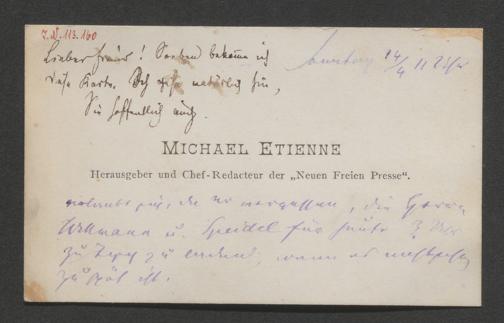 J.N. 113.160
Lieber Freund! Soeben bekomme ich
diese Karte. Ich gehe natürlich hin,
Sie hoffentlich auch.
Samstag 14/4 11 Uhr
MICHAEL ETIENNE
Herausgeber und Chef-Redacteur der „Neuen Freien Presse“.
erlaubt sich, da er vergessen, die Herren
u. Speidel für heute 3 Uhr
zu zu laden, wenn es nicht
zu spät ist.